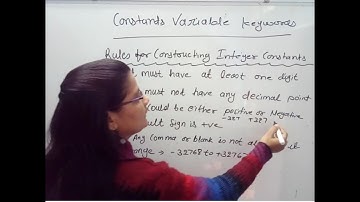 Constands Variable keywords
Rules for Constructing Integer Constants
must have at least one digit
must not have any decimal point
could be either positive or Negative
-327 +327
sign is +ve
Any comma or blank is not
-32768 to +32767